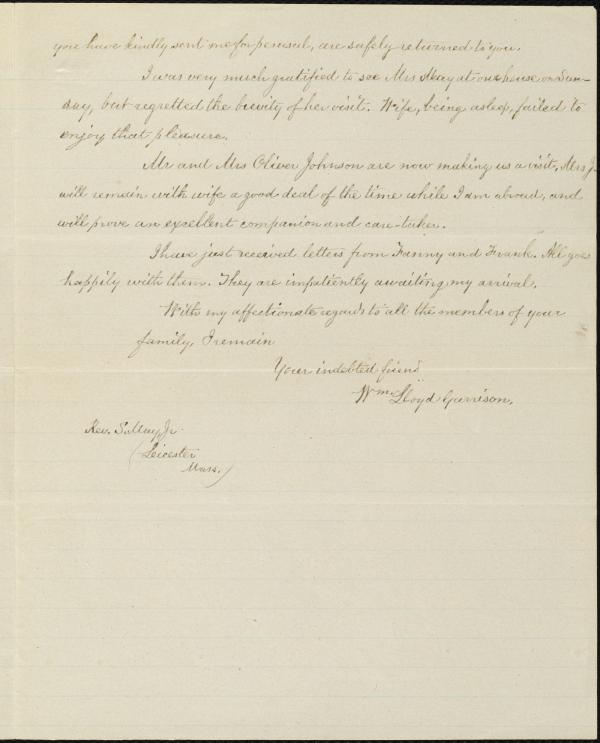 you have kindly sent me for perusal, are safely returned to you.
I was very much gratified to see Mrs May at our house on Sun-
day, but regretted the brevity of her visit. Wife, being asleep, failed to
enjoy that pleasure.
Mr and Mrs Oliver Johnson are now making us a visit. Mrs J.
will remain with wife a good deal of the time while I am abroad, and
will prove an excellent companion and care-taker.
I have just received letters from Fanny and Frank. All goes
happily with them. They are impatiently awaiting my arrival.
With my affectionate regards to all the members of your
family, I remain
Your indebted friend
Wm. Lloyd Garrison.
Rev. S. May, Jr.
(Leicester
Mass.)